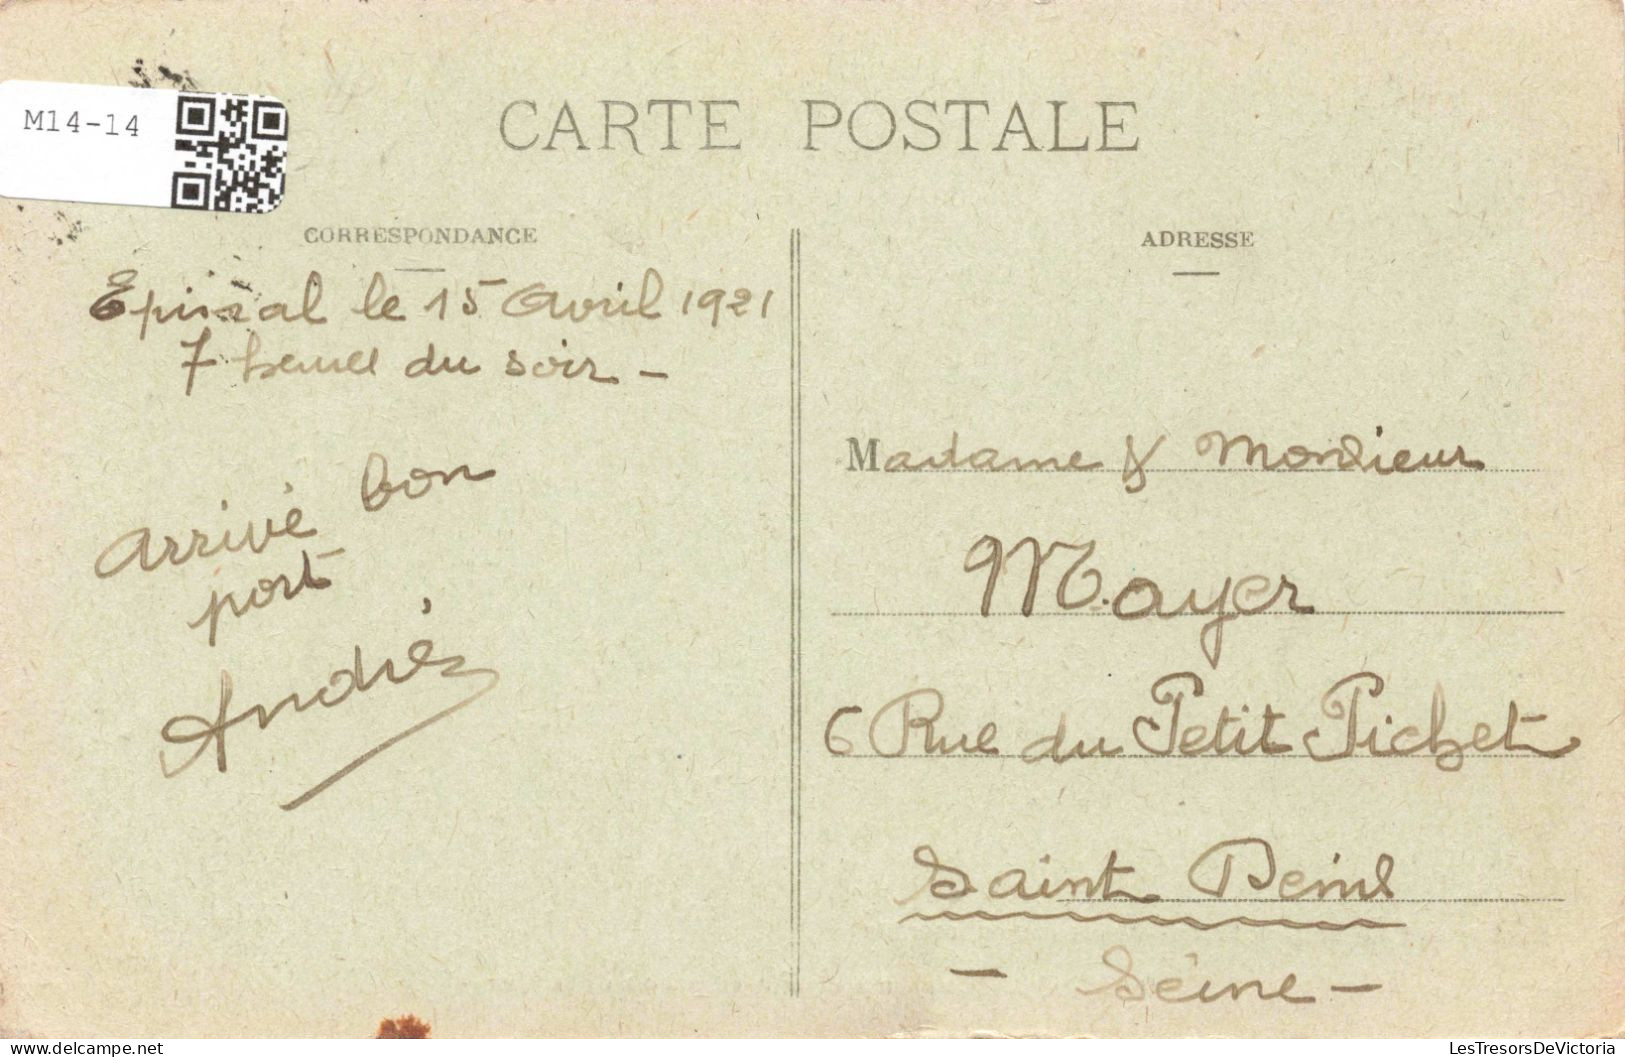 M14-14
CARTE POSTALE
CORRESPONDANCE
Epinal le 15 Avril 1921
7 heures du soir -
Arrivé bon
port
André
ADRESSE
Madame & Monsieur
Mayer
6 Rue du Petit Pichet
Saint Denis
- Seine -
LesTresorsDeVictoria